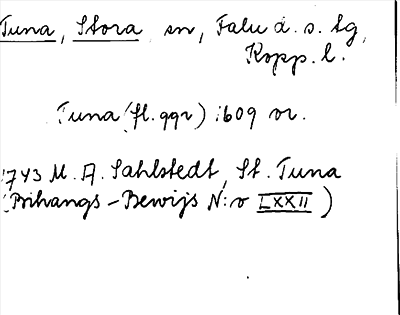 Tuna, Stora sn, Falu d. s. tg,
Kopp. l.
Tuna (fl. ggr) 1609 or.
1743 M. A. Sahlstedt, St. Tuna
(Bihangs-Bewijs N:o LXXII)